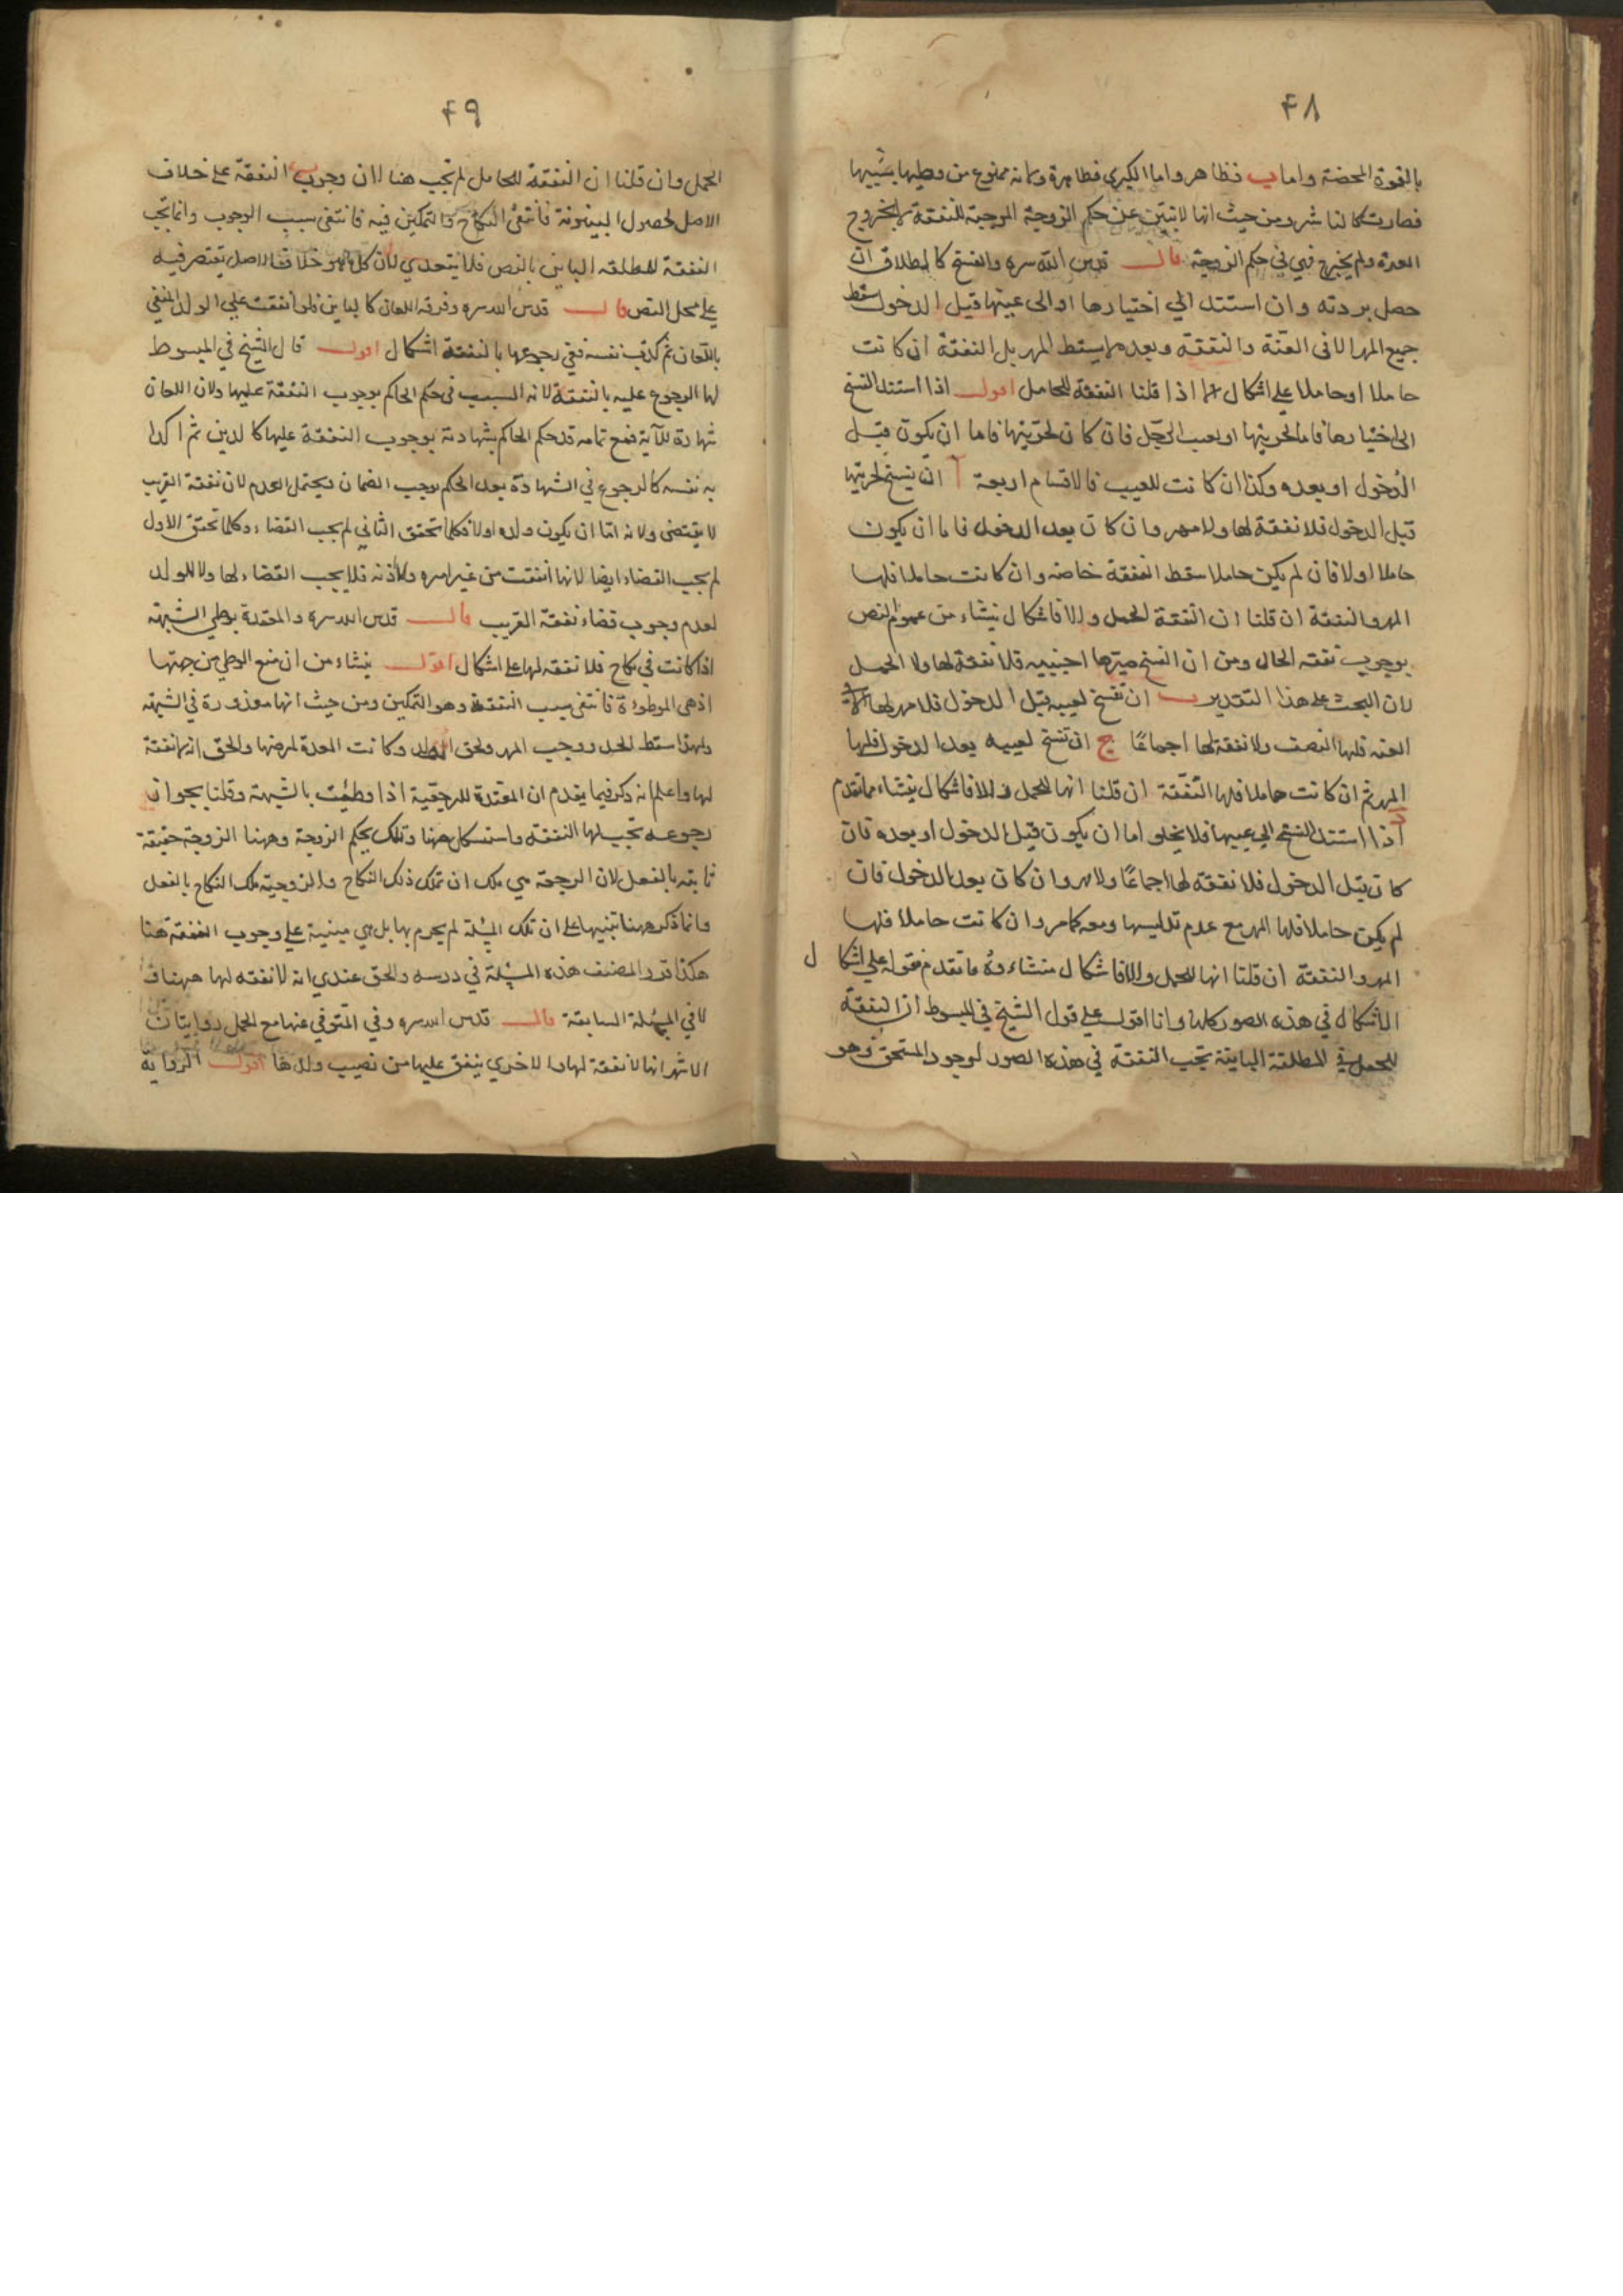 ۴۸
بالقوة المحضة واما ب فظاهر واما الكبرى فظاهرة وكانه ممنوع من وطيها بسببها
فصارت كالناشز ومن حيث انها لاتبين عن حكم الزوجية الموجبة للنفقة الا بخروج
العدة ولم يخرج فهي في حكم الزوجية قال قدس الله سره والفسخ كالطلاق ان
حصل بردته وان استند الي اختيارها او الى عيبها قبل الدخول سقط
جميع المهر الا في العنة والنفقة وبعده لا يسقط المهر بل النفقة ان كانت
حاملا او حاملا على اشكال الا اذا قلنا النفقة للحامل اقول اذا استند الفسخ
الى اختيارها فاما لحريتها او لعيب الرجل فان كان لحريتها فاما ان يكون قبل
الدخول او بعده وكذا ان كانت للعيب فالاقسام اربعة آ ان يفسخ لحريتها
قبل الدخول فلا نفقة لها ولا مهر وان كان بعد الدخول فاما ان يكون
حاملا اولا فان لم يكن حاملا سقط النفقة خاصة وان كانت حاملا فلها
المهر والنفقة ان قلنا ان النفقة للحمل والا فاشكال ينشاء من عموم النص
بوجوب نفقة الحال ومن ان الفسخ صيرها اجنبيه فلا نفقة لها ولا الحمل
لان البحث على هذا التقدير ب ان تفسخ لعيبه قبل الدخول فلا مهر لها الا في
العنه فلها النصف ولا نفقة لها اجماعًا ج ان تفسخ لعيبه بعد الدخول فلها
المهر ثم ان كانت حاملا فلها النفقة ان قلنا انها للحمل والا فاشكال ينشاء مما تقدم
د اذا استند الفسخ الي عيبها فلا يخلو اما ان يكون قبل الدخول او بعده فان
كان قبل الدخول فلا نفقة لها اجماعًا ولا مهر وان كان بعد الدخول فان
لم يكن حاملا فلها المهر مع عدم تدليسها ومعه كما مر وان كانت حاملا فلها
المهر والنفقة ان قلنا انها للحمل والا فاشكال منشاءوه ما تقدم فقوله علي اشكال
الاشكال في هذه الصور كلها وانا اقول على قول الشيخ في المبسوط ان النفقة
للحمل في المطلقة الباينة تجب النفقة في هذه الصور لوجود المستحق وهو
۴۹
الحمل وان قلنا ان النفقة للحامل لم تجب هنا لان وجوب النفقة على خلاف
الاصل لحصول البينونة فانتفى النكاح والتمكين فيه فانتفى سبب الوجوب وانما تجب
النفقة للمطلقه الباين بالنص فلا يتعدي لان كل ما هو خلاف الاصل يقتصر فيه
علي محل النص قال قدس الله سره وفرقة اللعان كالباين فلو انفقت علي الولد المنفي
باللعان ثم كذب نفسه ففي رجوعها بالنفقة اشكال اقول قال الشيخ في المبسوط
لها الرجوع عليه بالنفقة لانه السبب في حكم الحاكم بوجوب النفقة عليها ولان اللعان
شهادة للآية فمع تمامه قد حكم الحاكم بشهادته بوجوب النفقة عليها كالدين ثم اكذا
به نفسه كالرجوع في الشهادة بعد الحكم يوجب الضمان ويحتمل العدم لان نفقة القريب
لا يقتضى ولانه امّا ان يكون ولده اولا فكلما تحقق الثاني لم يجب القضاء وكلما تحقق الاول
لم يجب القضاء ايضا لانها انفقت من غير امره ولا اذنه فلا يجب القضاء لها ولا للولد
لعدم وجوب قضاء نفقة القريب قال قدس الله سره والمعتدة بوطي الشبهة
اذا كانت في نكاح فلا نفقه لها على اشكال اقول ينشاء من ان منع الوطي من جهتها
اذ هى الموطوءة فانتفى سبب النفقة وهو التمكين ومن حيث انها معذورة في الشبهة
ولهذا سقط الحد ووجب المهر ولحق الولد وكانت العدة لمرضها والحق انه لا نفقة
لها واعلم انه ذكر فيما يقدم ان المعتدة للرجعية اذا وطئت بالشبهة وقلنا بجواز
رجوعه تجب لها النفقة واستشكل ههنا وتلك بحكم الزوجة وههنا الزوجية حقيقة
ثابته بالفعل لان الرجعة هي ملك ان تملك ذلك النكاح والزوجية ملك النكاح بالفعل
وانما ذكر ههنا تنبيها على ان تلك المسئلة لم يجزم بها بل هي مبنية على وجوب النفقة هنا
هكذا قرر المصنف هذه المسئلة في درسه والحق عندي انه لا نفقه لها ههنا و
لا في المسئلة السابقة قال قدس الله سره وفي المتوفي عنها مع الحمل روايتان
الاشهر انها لا نفقة لها والاخري ينفق عليها من نصيب ولدها اقول الرواية